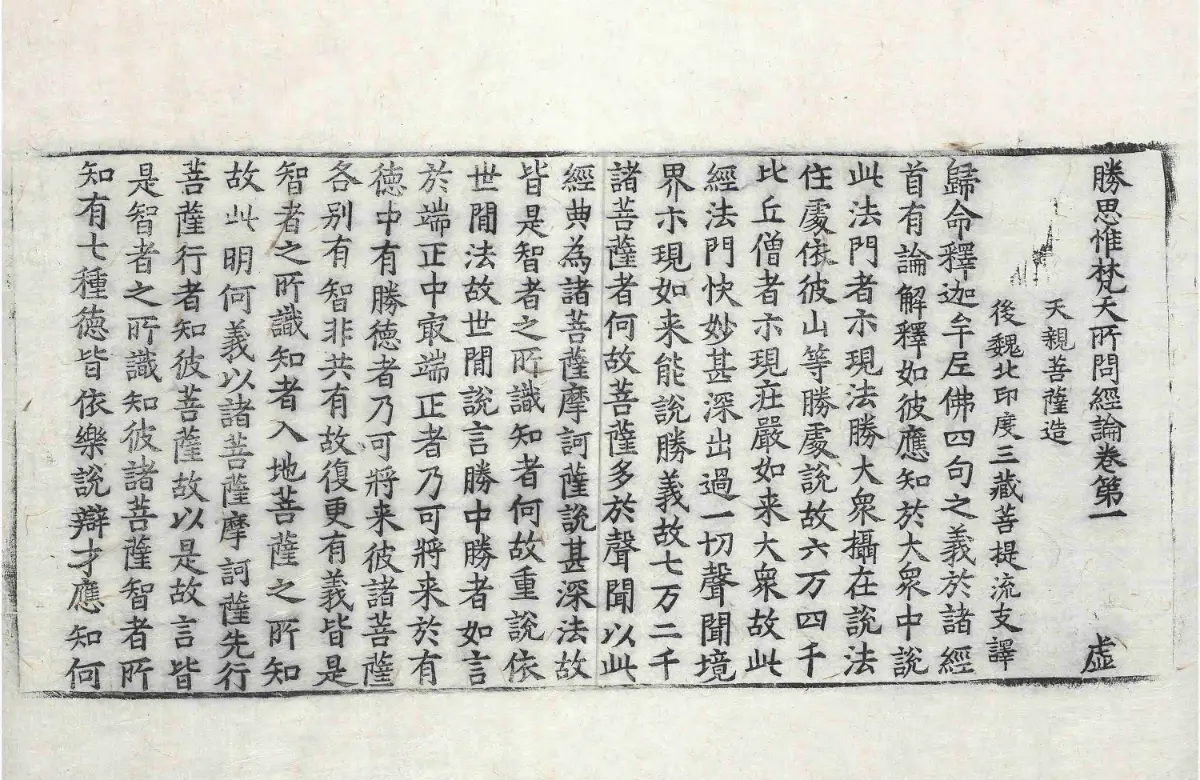 勝思惟梵天所問經論卷第一 虛
天親菩薩造
後魏北印度三藏菩提流支譯
歸命釋迦牟尼佛四句之義於諸經
首有論解釋如彼應知於大衆中說
此法門者示現法勝大衆攝在說法
住處依彼山等勝處說故六万四千
比丘僧者示現莊嚴如来大衆故此
經法門快妙甚深出過一切聲聞境
界示現如来能說勝義故七万二千
諸菩薩者何故菩薩多於聲聞以此
經典為諸菩薩摩訶薩說甚深法故
皆是智者之所識知者何故重說依
世間法故世間說言勝中勝者如言
於端正中冣端正者乃可將来於有
德中有勝德者乃可將来彼諸菩薩
各別有智非共有故復更有義皆是
智者之所識知者入地菩薩之所知
故此明何義以諸菩薩摩訶薩先行
菩薩行者知彼菩薩故以是故言皆
是智者之所識知彼諸菩薩智者所
知有七種德皆依樂說辯才應知何